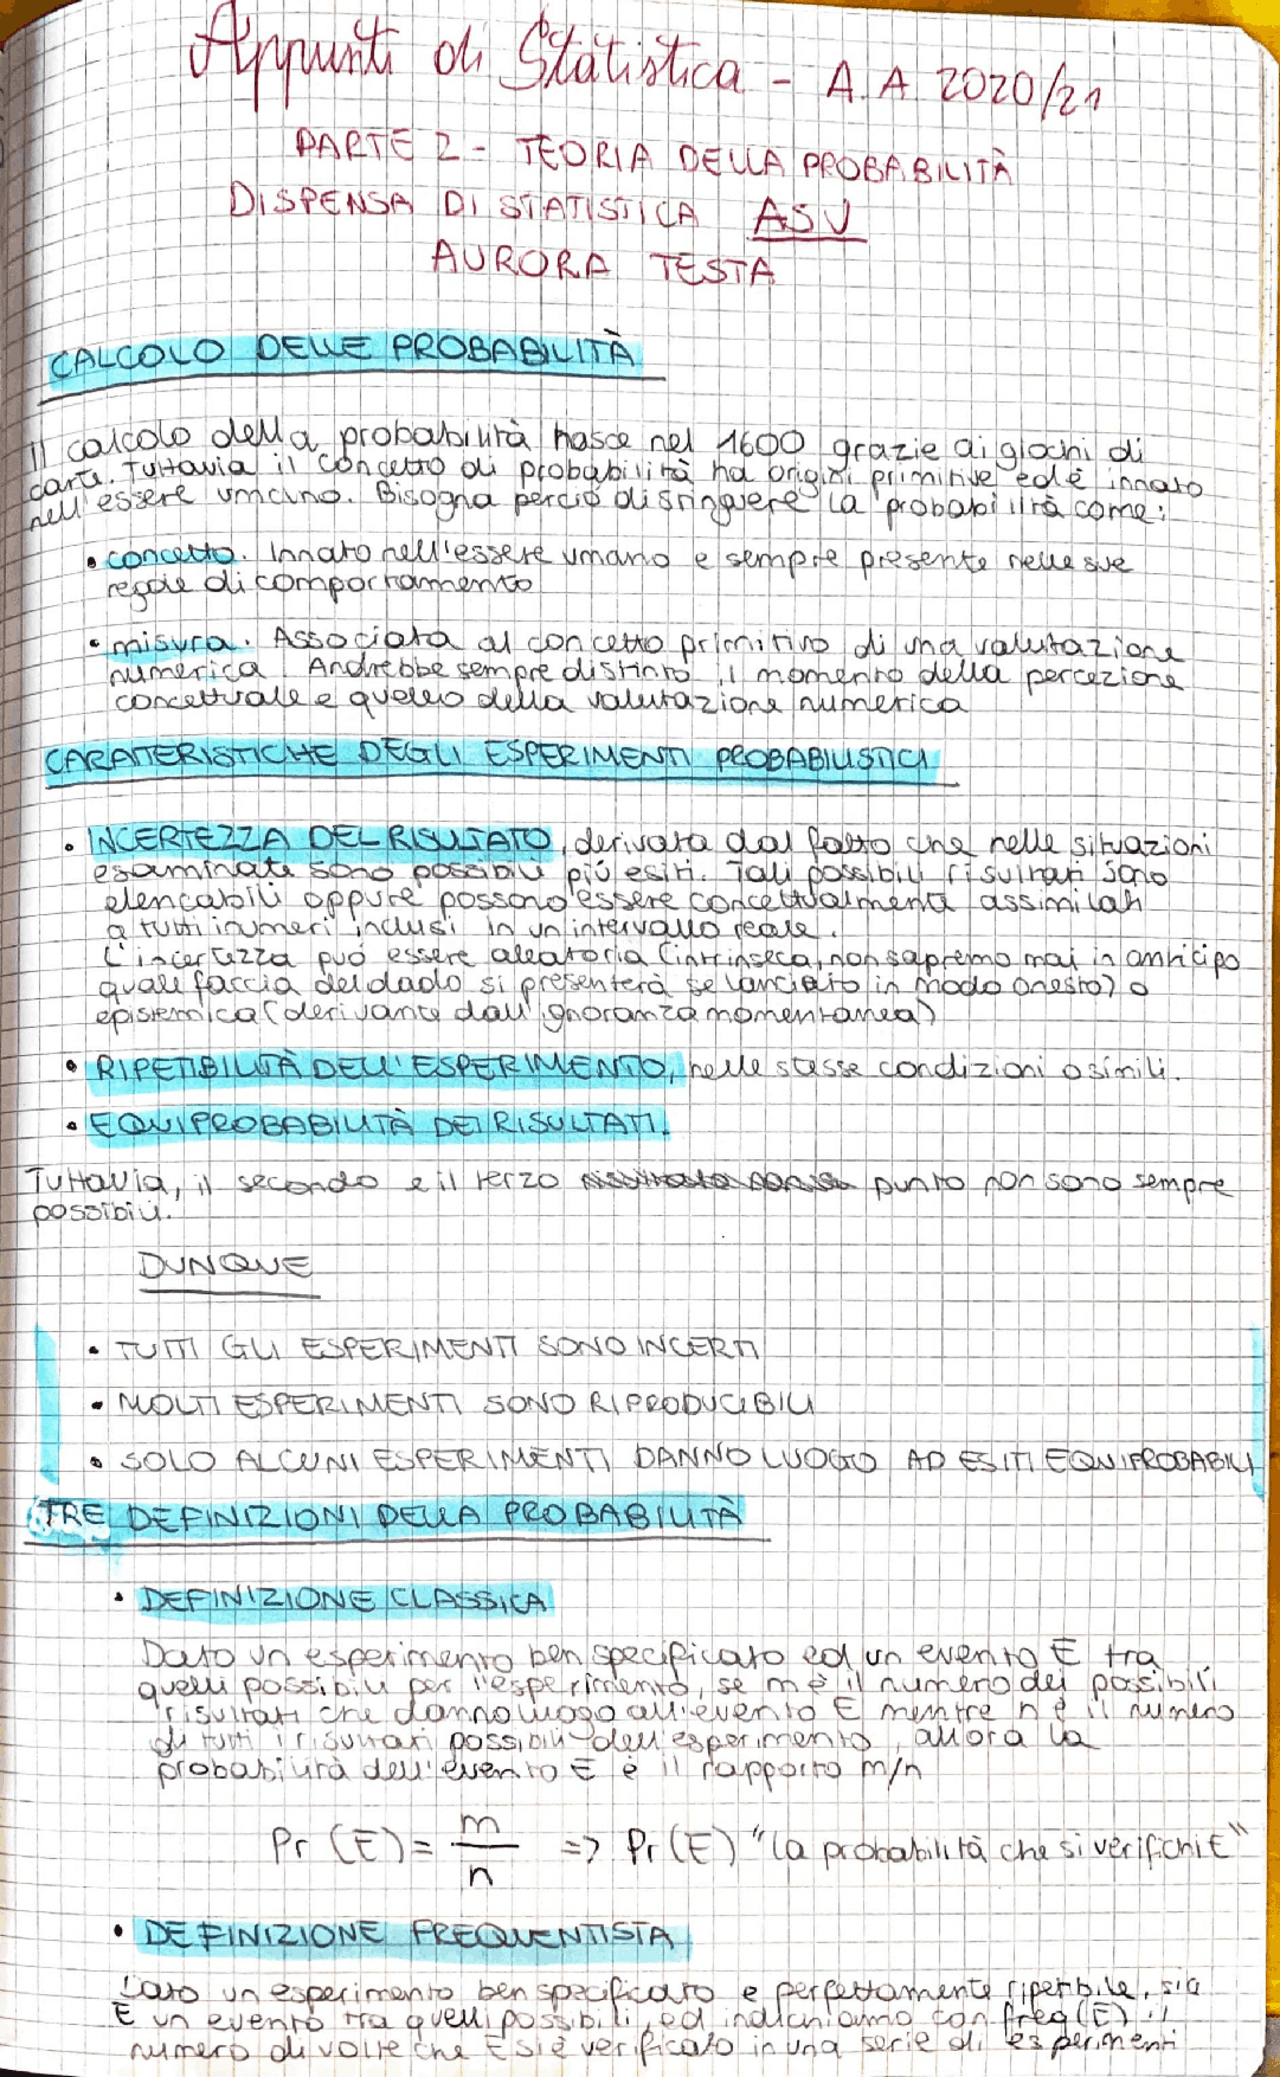 Appunti di Statistica - A.A. 2020/21
PARTE 2 - TEORIA DELLA PROBABILITÀ
DISPENSA DI STATISTICA ASV
AURORA TESTA
CALCOLO DELLE PROBABILITÀ
Il calcolo della probabilità nasce nel 1600 grazie ai giochi di
carte. Tuttavia il concetto di probabilità ha origini primitive ed è innato
nell'essere umano. Bisogna perciò distinguere la probabilità come:
• concetto. Innato nell'essere umano e sempre presente nelle sue
regole di comportamento
• misura. Associata al concetto primitivo di una valutazione
numerica. Andrebbe sempre distinto il momento della percezione
concettuale e quello della valutazione numerica
CARATTERISTICHE DEGLI ESPERIMENTI PROBABILISTICI
• INCERTEZZA DEL RISULTATO, derivata dal fatto che nelle situazioni
esaminate sono possibili più esiti. Tali possibili risultati sono
elencabili oppure possono essere concettualmente assimilati
a tutti i numeri inclusi in un intervallo reale.
L'incertezza può essere aleatoria (intrinseca, non sapremo mai in anticipo
quale faccia del dado si presenterà se lanciato in modo onesto) o
epistemica (derivante dall'ignoranza momentanea)
• RIPETIBILITÀ DELL'ESPERIMENTO, nelle stesse condizioni o simili.
• EQUIPROBABILITÀ DEI RISULTATI.
Tuttavia, il secondo e il terzo punto non sono sempre
possibili.
DUNQUE
• TUTTI GLI ESPERIMENTI SONO INCERTI
• MOLTI ESPERIMENTI SONO RIPRODUCIBILI
• SOLO ALCUNI ESPERIMENTI DANNO LUOGO AD ESITI EQUIPROBABILI
TRE DEFINIZIONI DELLA PROBABILITÀ
• DEFINIZIONE CLASSICA
Dato un esperimento ben specificato ed un evento E tra
quelli possibili per l'esperimento, se m è il numero dei possibili
risultati che danno luogo all'evento E mentre n è il numero
di tutti i risultati possibili dell'esperimento, allora la
probabilità dell'evento E è il rapporto m/n
Pr (E) = m/n => Pr (E) "la probabilità che si verifichi E"
• DEFINIZIONE FREQUENTISTA
Dato un esperimento ben specificato e perfettamente ripetibile, sia
E un evento tra quelli possibili, ed indichiamo con freq (E) il
numero di volte che E si è verificato in una serie di esperimenti